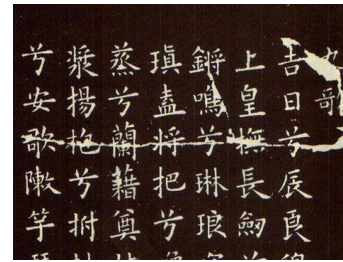 九哥
吉日兮辰良
上皇撫長劒
鏘鳴兮琳琅
瑱盍將把兮
蒸兮蘭藉奠
漿揚枹兮拊
兮安歌敶竽